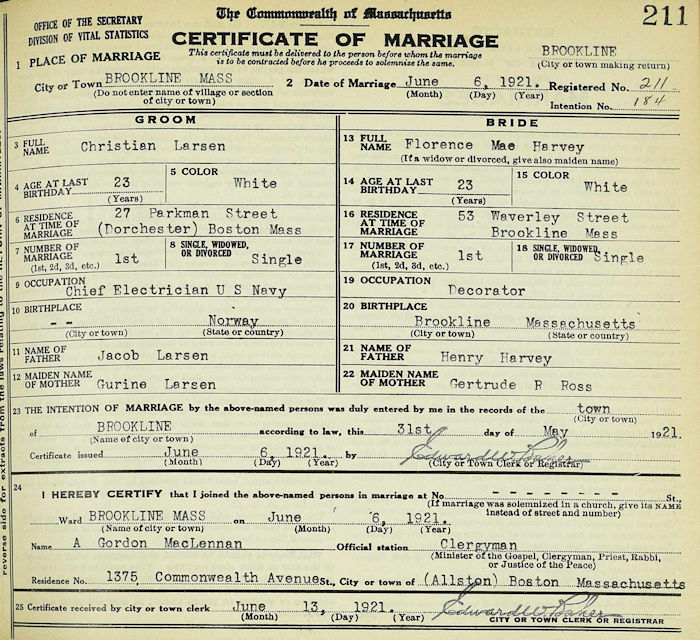 The Commonwealth of Massachusetts
211
OFFICE OF THE SECRETARY
DIVISION OF VITAL STATISTICS
CERTIFICATE OF MARRIAGE
This certificate must be delivered to the person before whom the marriage
is to be contracted before he proceeds to solemnize the same.
BROOKLINE
(City or town making return)
1 PLACE OF MARRIAGE
City or Town BROOKLINE MASS
(Do not enter name of village or section
of city or town)
2 Date of Marriage June 6, 1921.
(Month) (Day) (Year)
Registered No. 211
Intention No. 184
GROOM
3 FULL NAME Christian Larsen
4 AGE AT LAST BIRTHDAY 23
(Years)
5 COLOR White
6 RESIDENCE AT TIME OF MARRIAGE 27 Parkman Street
(Dorchester) Boston Mass
7 NUMBER OF MARRIAGE 1st
(1st, 2d, 3d, etc.)
8 SINGLE, WIDOWED, OR DIVORCED Single
9 OCCUPATION Chief Electrician U S Navy
10 BIRTHPLACE
-- Norway
(City or town) (State or country)
11 NAME OF FATHER Jacob Larsen
12 MAIDEN NAME OF MOTHER Gurine Larsen
BRIDE
13 FULL NAME Florence Mae Harvey
(If a widow or divorced, give also maiden name)
14 AGE AT LAST BIRTHDAY 23
(Years)
15 COLOR White
16 RESIDENCE AT TIME OF MARRIAGE 53 Waverley Street
Brookline Mass
17 NUMBER OF MARRIAGE 1st
(1st, 2d, 3d, etc.)
18 SINGLE, WIDOWED, OR DIVORCED Single
19 OCCUPATION Decorator
20 BIRTHPLACE
Brookline Massachusetts
(City or town) (State or country)
21 NAME OF FATHER Henry Harvey
22 MAIDEN NAME OF MOTHER Gertrude R Ross
23 THE INTENTION OF MARRIAGE by the above-named persons was duly entered by me in the records of the town
(City or town)
of BROOKLINE according to law, this 31st day of May 1921.
(Name of city or town)
Certificate issued June 6, 1921. by Edward W. Baker
(Month) (Day) (Year) (City or Town Clerk or Registrar)
24
I HEREBY CERTIFY that I joined the above-named persons in marriage at No. - - - - - - - St.,
(If marriage was solemnized in a church, give its NAME
instead of street and number)
Ward BROOKLINE MASS on June 6, 1921.
(Name of city or town) (Month) (Day) (Year)
Name A Gordon MacLennan Official station Clergyman
(Minister of the Gospel, Clergyman, Priest, Rabbi,
or Justice of the Peace)
Residence No. 1375 Commonwealth Avenue St., City or town of (Allston) Boston Massachusetts
25 Certificate received by city or town clerk June 13, 1921. Edward W. Baker
(Month) (Day) (Year) CITY OR TOWN CLERK OR REGISTRAR
reverse side for extracts from the laws relating to the